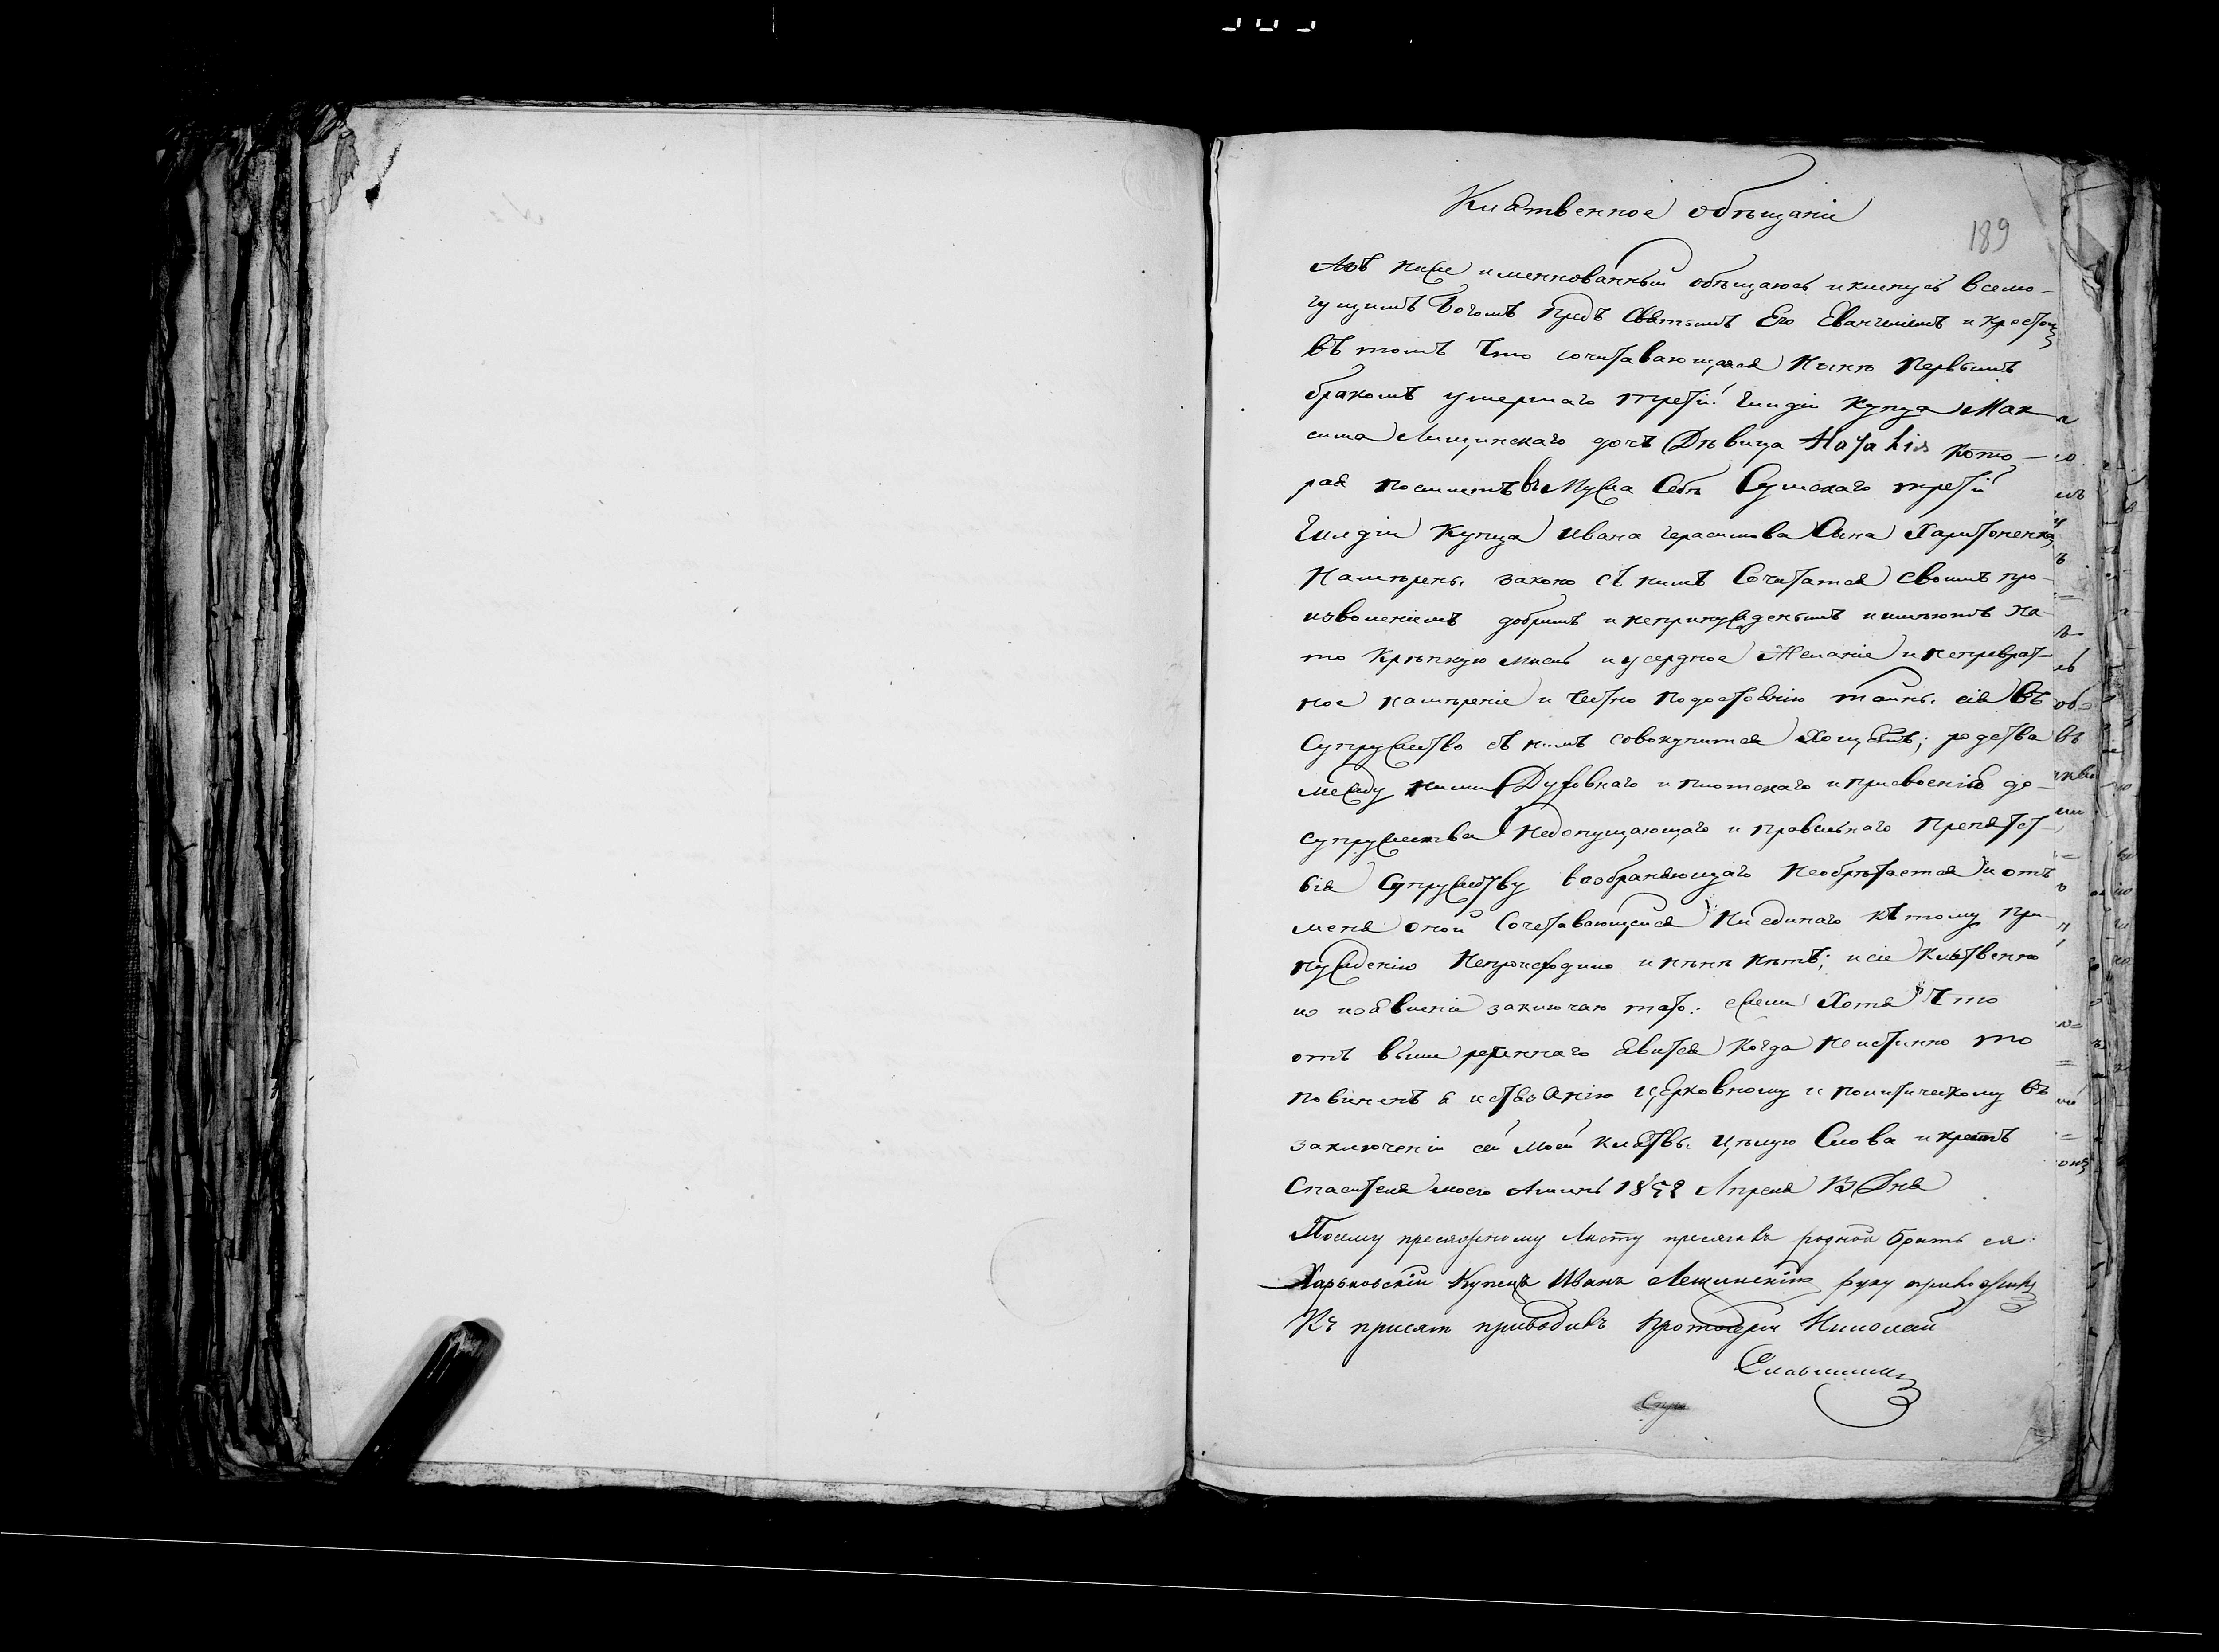 Клятвенное обѣщаніе
189
Азъ ниже именнованный обѣщаюсь и кленусь всемо-
гущимъ Богомъ предъ Святымъ Его Евангелиемъ и крестомъ
въ томъ что сочитавающаяся нынѣ первымъ
бракомъ умершаго третій гилдіи купца Мак-
сима Лищинскаго дочь Дѣвица Наталія кото-
рая поемлетъ въ мужа себѣ Сумскаго третій
Гилдіи купца Ивана Герасимова Сына Харитоненка
Намѣрены законо съ нимъ сочитатся своимъ про-
изволеніемъ добрымъ и непринужденымъ и имѣютъ на-
то крѣпкую мисль и усердное желаніе и непреврат-
ное намѣреніе и честно по достоянію тайны сія въ
Супружество съ нимъ совокупитися хощетъ; родства
между ними Духовнаго и плотскаго и присвоенія до-
супружества недопущающаго и правильнаго препятст-
вія Супружеству возбраняющаго необрѣтается и отъ
меня оной сочетавающейся ни единаго кътому при-
нужденію непроисходило и нынѣ нѣтъ; и сіе клятвенно
из изъявленіе заключаю тако: ежели хотя что
отъ више реченнаго явится когда неистинно то
повіненъ я истязанію церковному и политическому въ
заключеніи сей моей клятвы цѣлую Слова и крестъ
Спасителя моего Аминь 1852 Апреля 13 Дня
По сему присяжному листу присягавъ родной братъ ея
Харьковскій Купецъ Иванъ Лещинскій руку приложилъ
Къ присяги приводивъ протоіерей Николай